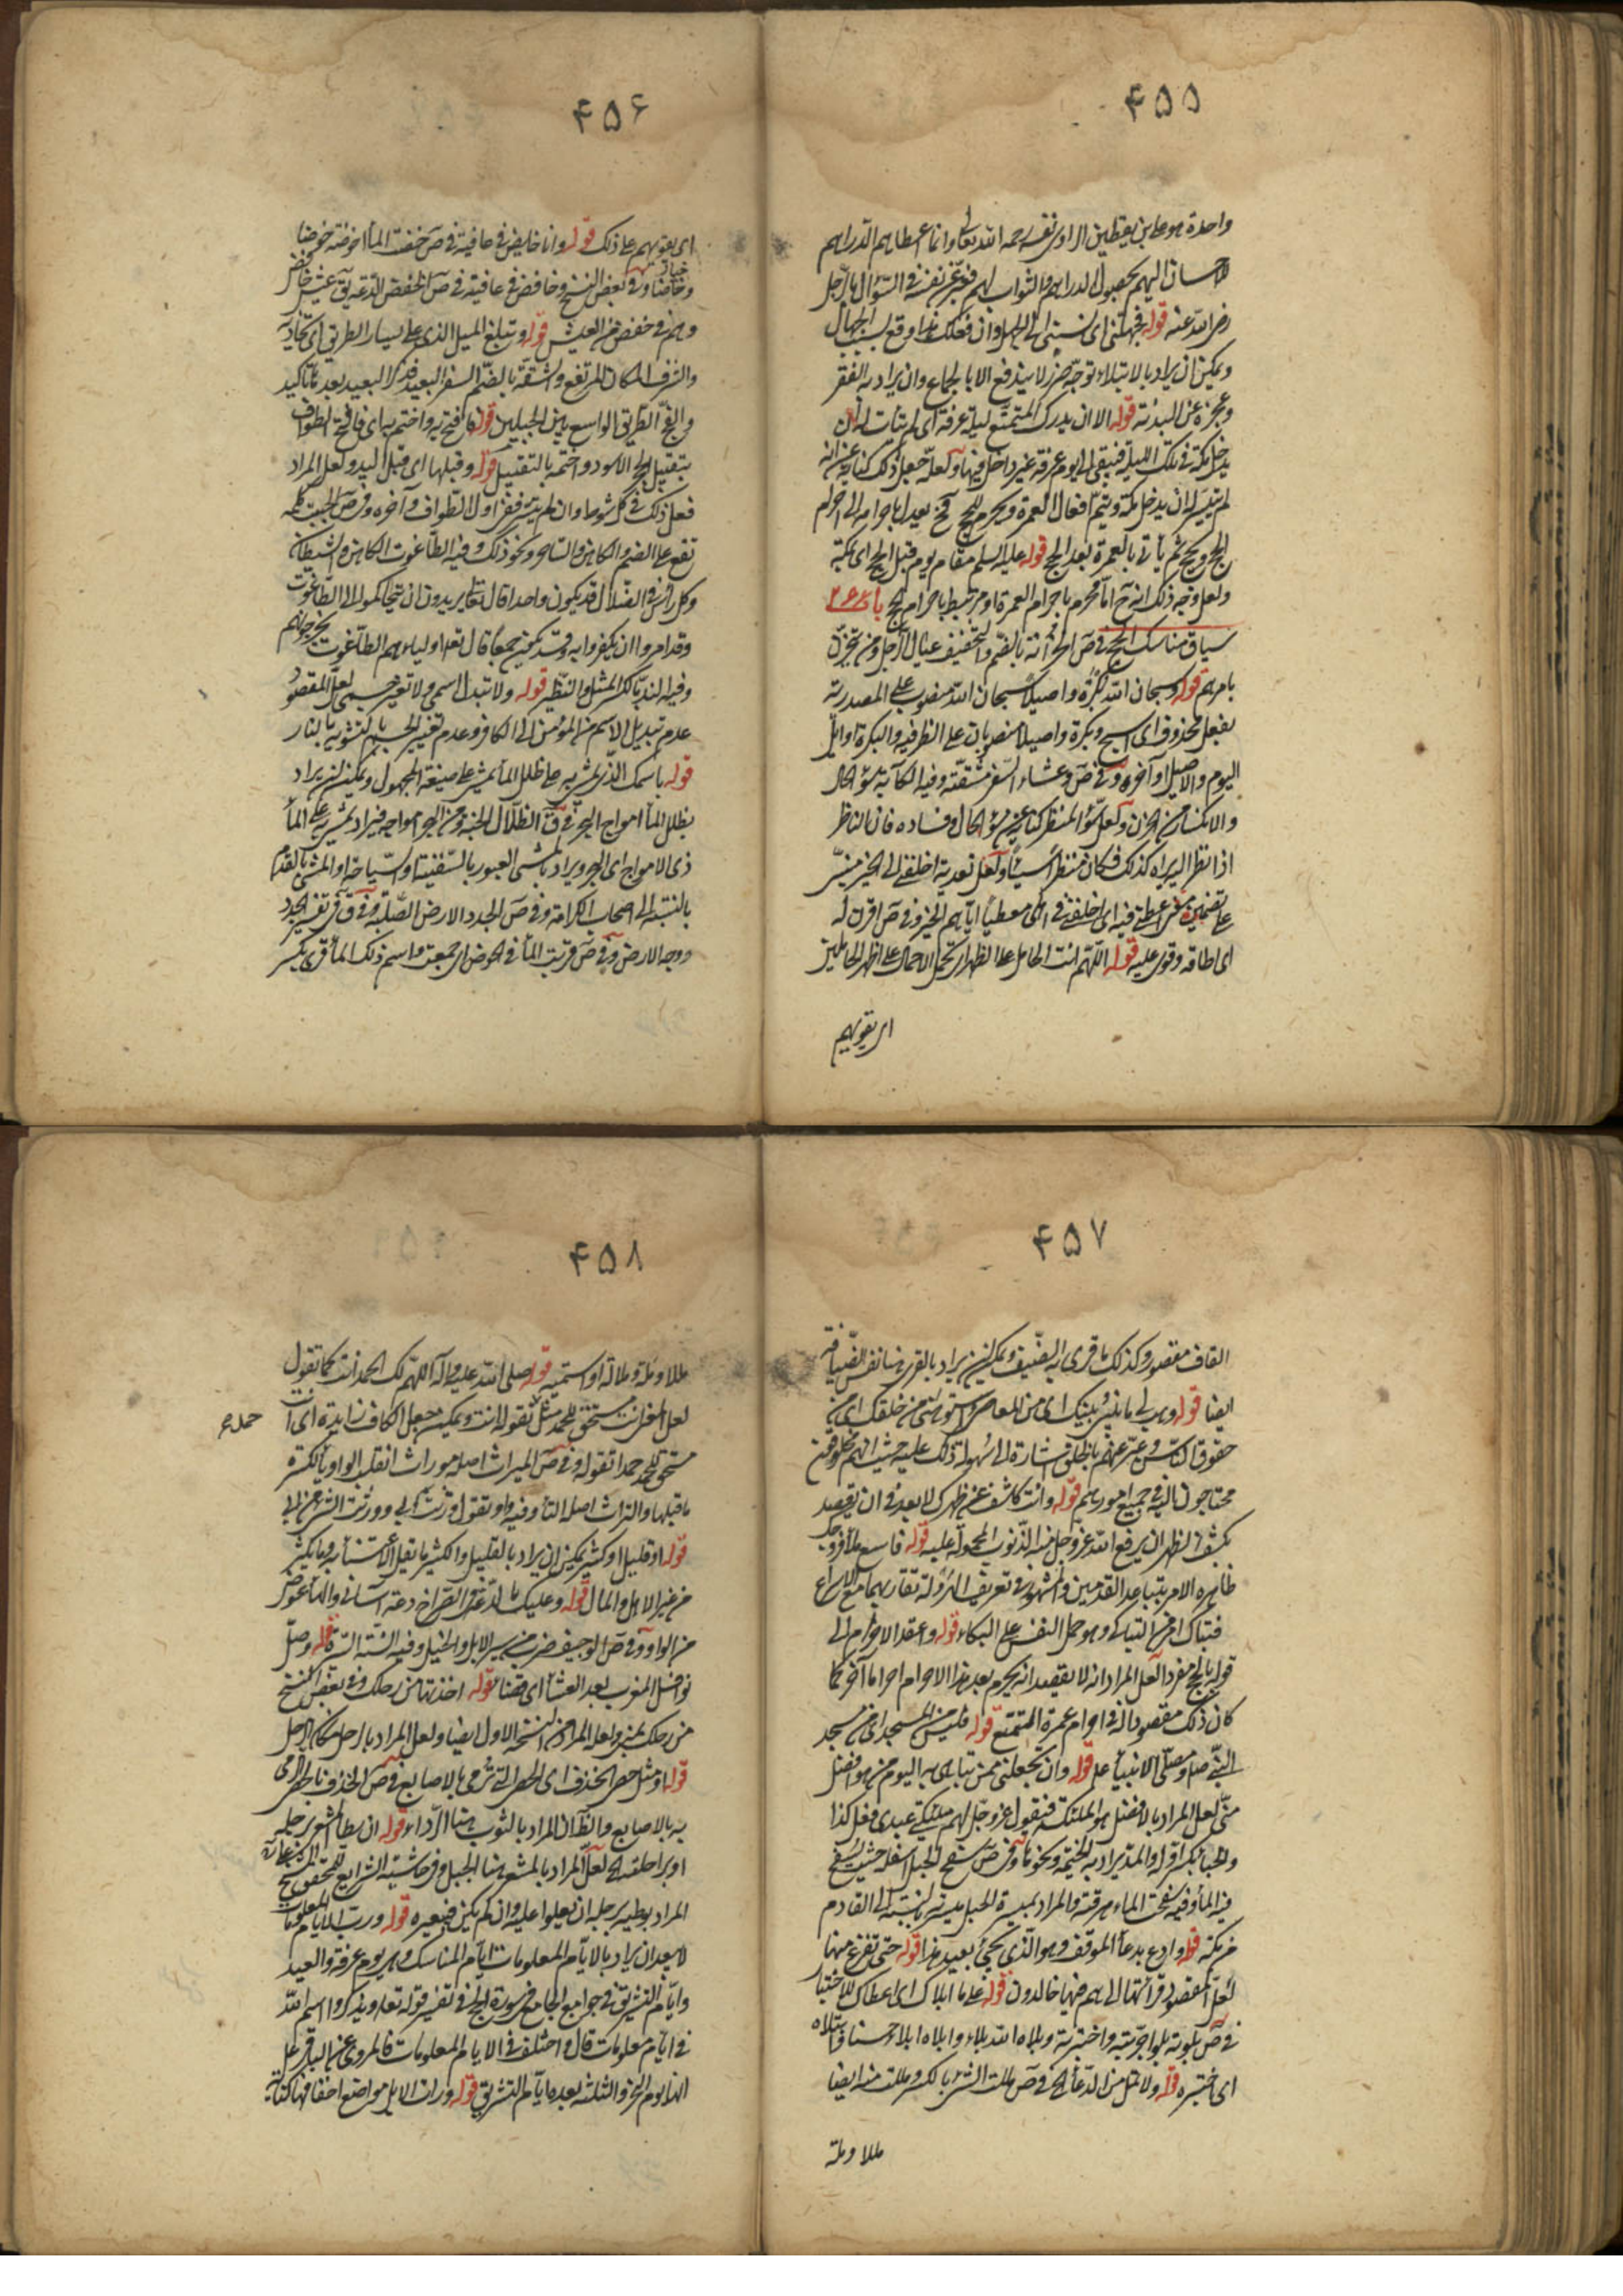 ۴۵۵
واحدة هو علي بن يقطين الراوي نفسه رحمه الله تعالى وانما اعطاهم الدراهم
لاحسان اليهم بحصول الدراهم والثواب لهم فعبر عن نفسه في السؤال بالرجل
رضي الله عنه قوله فجهلتني اي نسبتني الى الجهل وان فعلك هذا وقع بسبب الجهال
ويمكن ان يراد بالابتلاء توجه ضرر لا يندفع الا بالجماع وان يراد به الفقر
وعجزه عن البدنة قوله الا ان يدرك المتمتع ليلة عرفة اي لم يتأت له ان
يدخل مكة في تلك الليلة فيبقى الى يوم عرفة غير داخل فيها ولعله جعل ذلك كناية عن انه
لم يتيسر له ان يدخل مكة ويتم افعال العمرة ويحرم للحج فح يعدل باحرامه الى احرام
الحج ويحج ثم يأتي بالعمرة بعد الحج قوله عليه السلم مقام يوم قبل الحج اي بمكة
ولعل وجه ذلك انه ح اما محرم باحرام العمرة او مرتبط باحرام الحج باب
سياق مناسك الحج في ص الحزانة بالضم والتخفيف عيال الرجل ومن يتحزن
بامرهم قوله وسبحان الله بكرة واصيلا سبحان الله منصوب على المصدرية
بفعل محذوف اي اسبح وبكرة واصيلا منصوبان على الظرفية والبكرة اوائل
اليوم والاصيل اواخره وفي ص وعثاء السفر مشقته وفيه الكآبة سوء الحال
والانكسار من الحزن ولعل سوء المنظر كناية عن سوء الحال وفساده فان الناظر
اذا نظر اليه يراه كذلك فكان منظرا سيئا ولعل تعدية اخلفني الى الخير مبني
على تضمين معنى اعطى فيه اي اخلفني في اهلي معطيا اياهم الخير وفي ص اقرن له
اي اطاقه وقوي عليه قوله اللهم انت الحامل على الظهر اي تحمل الاحمال على اظهر الحاملين
اي يقويهم
۴۵۶
اي يقويهم على ذلك قوله وانا خايض في عافية في ص خضت الماء اخوضه خوضا
وخياضا وفي بعض النسخ وخافض في عافية في ص الخفض الدعة يق عيش خافض
وهم في خفض من العيش قوله وتبلغ الميل الذي على يسار الطريق اي تحاذيه
والشرف المكان المرتفع والشقة بالضم السفر البعيد فذكر البعيد بعده تأكيد
والفج الطريق الواسع بين الجبلين قوله فافتح به واختم به اي فافتح الطواف
بتقبيل الحجر الاسود واختمه بالتقبيل قوله وقبلها اي قبل اليد ولعل المراد
فعل ذلك في كل شوط او ان لم يتيسر ففي اول الطواف وآخره وفي ص الجبت كلمة
تقع على الصنم والكاهن والساحر ونحو ذلك وفيه الطاغوت الكاهن والشيطان
وكل رأس في الضلال قد يكون واحدا قال تعالى يريدون ان يتحاكموا الى الطاغوت
وقد امروا ان يكفروا به وقد يكون جمعا قال تعالى اولياءهم الطاغوت يخرجونهم
وفيه الند بالكسر المثل والنظير قوله ولا تبدل اسمي ولا تغير جسمي لعل المقصود
عدم تبديل الاسم من المؤمن الى الكافر وعدم تغيير الجسم بالتشويه بالنار
قوله باسمك الذي يمشى به على ظلل الماء يمشى على صيغة المجهول ويمكن ان يراد
بظلل الماء امواج البحر في ق الظلال الجنة ومن البحر امواجه فيراد يمشى به على الماء
ذي الامواج اي البحر ويراد بالمشي العبور بالسفينة او السباحة او المشي بالقدم
بالنسبة الى اصحاب الكرامة وفي ص الجدد الارض الصلبة وفي ق في تفسير الجدد
ووجه الارض وفي ص قريت الماء في الحوض اي جمعت واسم ذلك الماء قرى بكسر
۴۵۷
القاف مقصور وكذلك ما قرى به الضيف ويمكن ان يراد بالقرى هنا نفس الضيافة
ايضا قوله وهب لي ما بيني وبينك اي من المعاصي واستوهبني من خلقك اي من
حقوق الناس وعبر عنهم بالخلق اشارة الى سهولة ذلك عليه حيث انهم مخلوقون
محتاجون اليه في جميع امورهم قوله وانت كاشف عن ظهرك لا يبعد ان يقصد
بكشف الظهر ان يرفع الله عز وجل عنه الذنوب المحمولة عليه قوله فاسع ملأ فروجك
ظاهره الامر بتباعد القدمين والمشهور في تعريف الهرولة تقاربهما مع الاسراع
فتباك امر من التباكي وهو حمل النفس على البكاء قوله واعقد الاحرام الى
قوله بالحج مفردا لعل المراد انه لا يقصد انه يحرم بعد هذا الاحرام احراما آخر كما
كان ذلك مقصودا له في احرام عمرة التمتع قوله فليس من المسجد اي من مسجد
النبي ص او مصلى الانبياء ع قوله وان تجعلني ممن تباهي به اليوم من هو افضل
مني لعل المراد بالافضل هو الملئكة فيقول عز وجل لهم ملئكتي عبدي فعل كذا
والخباء بكسر اوله والمد يراد به الخيمة ونحوها وفي ص سفح الجبل اسفله حيث يسفح
فيه الماء وفيه سفحت الماء هرقته والمراد بميسرة الجبل ميسرته بالنسبة الى القادم
من مكة قوله وادع بدعاء الموقف وهو الذي يجيء بعيد هذا قوله حتى تفرغ منها
لعل المقصود قراءتها الى هم فيها خالدون قوله على ما ابلاك اي اعطاك للاختبار
في ص بلوته بلوا جربته واختبرته وبلاه الله بلاء وابلاه ابلاء حسنا وابتلاه
اي اختبره قوله ولا تمل من الدعاء الخ في ص مللت الشيء بالكسر ومللت منه ايضا
مللا وملة
۴۵۸
مللا وملة وملالة او استمته قوله صلى الله عليه وآله اللهم لك الحمد انت كما تقول
لعل المعنى انت مستحق للحمد مثل تقوله انت ويمكن جعل الكاف زايدة اي انت
حمد
مستحق للحمد حمدا تقوله وفي ص الميراث اصله موراث انقلب الواو ياء لكسرة
ما قبلها والتراث اصل التاء فيه واو تقول ورثت ابي وورثت الشيء من ابي
قوله او قليل او كثير يمكن ان يراد بالقليل والكثير ما تقل الاستئناس به وما يكثر
من غير الاهل والمال قوله وعليك بالدعة في الصراح دعة آساني والهاء عوض
من الواو وفي ص الوجيف ضرب من سير الابل والخيل وفيه السنة السيرة قوله وصل
نوافل المغرب بعد العشاء اي قضاء قوله اخذتها من رحلك وفي بعض النسخ
من رحلك بمنى ولعله المراد من النسخة الاولى ايضا ولعل المراد بالرحل مكان الرحل
قوله او مثل حصى الخذف اي الحصى التي ترمى بالاصابع في ص الخذف بالحصى الرمي
به بالاصابع والظ ان المراد بالثوب هنا الرداء قوله ان يطأ المشعر برجله
او براحلته الخ لعل المراد بالمشعر هنا الجبل وفي حاشية الشرايع للمحقق الشيخ علي ره
المراد بوطئه برجله ان يعلوا عليه وان لم يكن فببعيره قوله ورب الايام المعلومات
لا يبعد ان يراد بالايام المعلومات ايام المناسك وهي يوم عرفة والعيد
وايام التشريق في جوامع الجامع في سورة الحج في تفسير قوله تعالى ويذكروا اسم الله
في ايام معلومات قال واختلف في الايام المعلومات فالمروي عن الباقر ع
انها يوم النحر والثلثة بعده ايام التشريق قوله ورات الابل مواضع اخفافها كناية